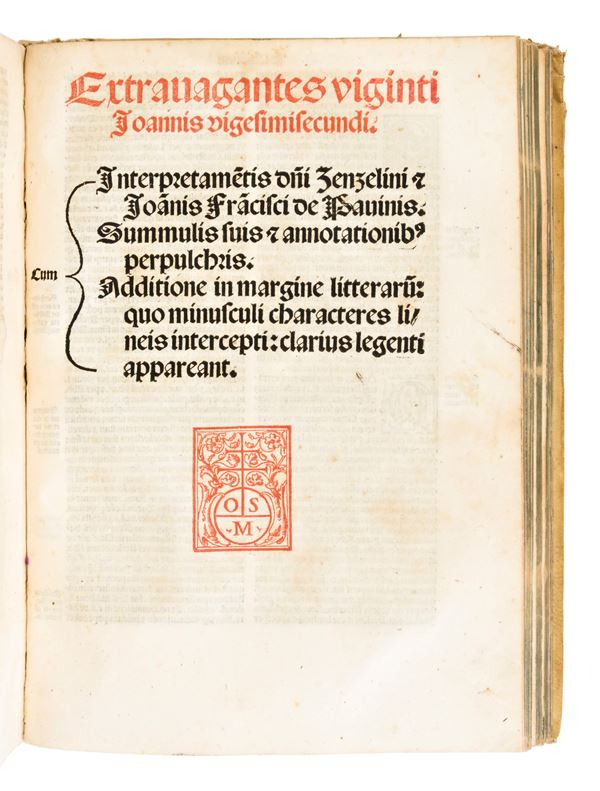 Extrauagantes viginti
Joannis vigesimisecundi.
Cum
Interpretamẽtis dñi Zenzelini ⁊
Joãnis Frãcisci de Pauinis.
Summulis suis ⁊ annotationibꝰ
perpulchris.
Additione in margine litterarũ:
quo minusculi characteres li/
neis intercepti: clarius legenti
appareant.
O S
M